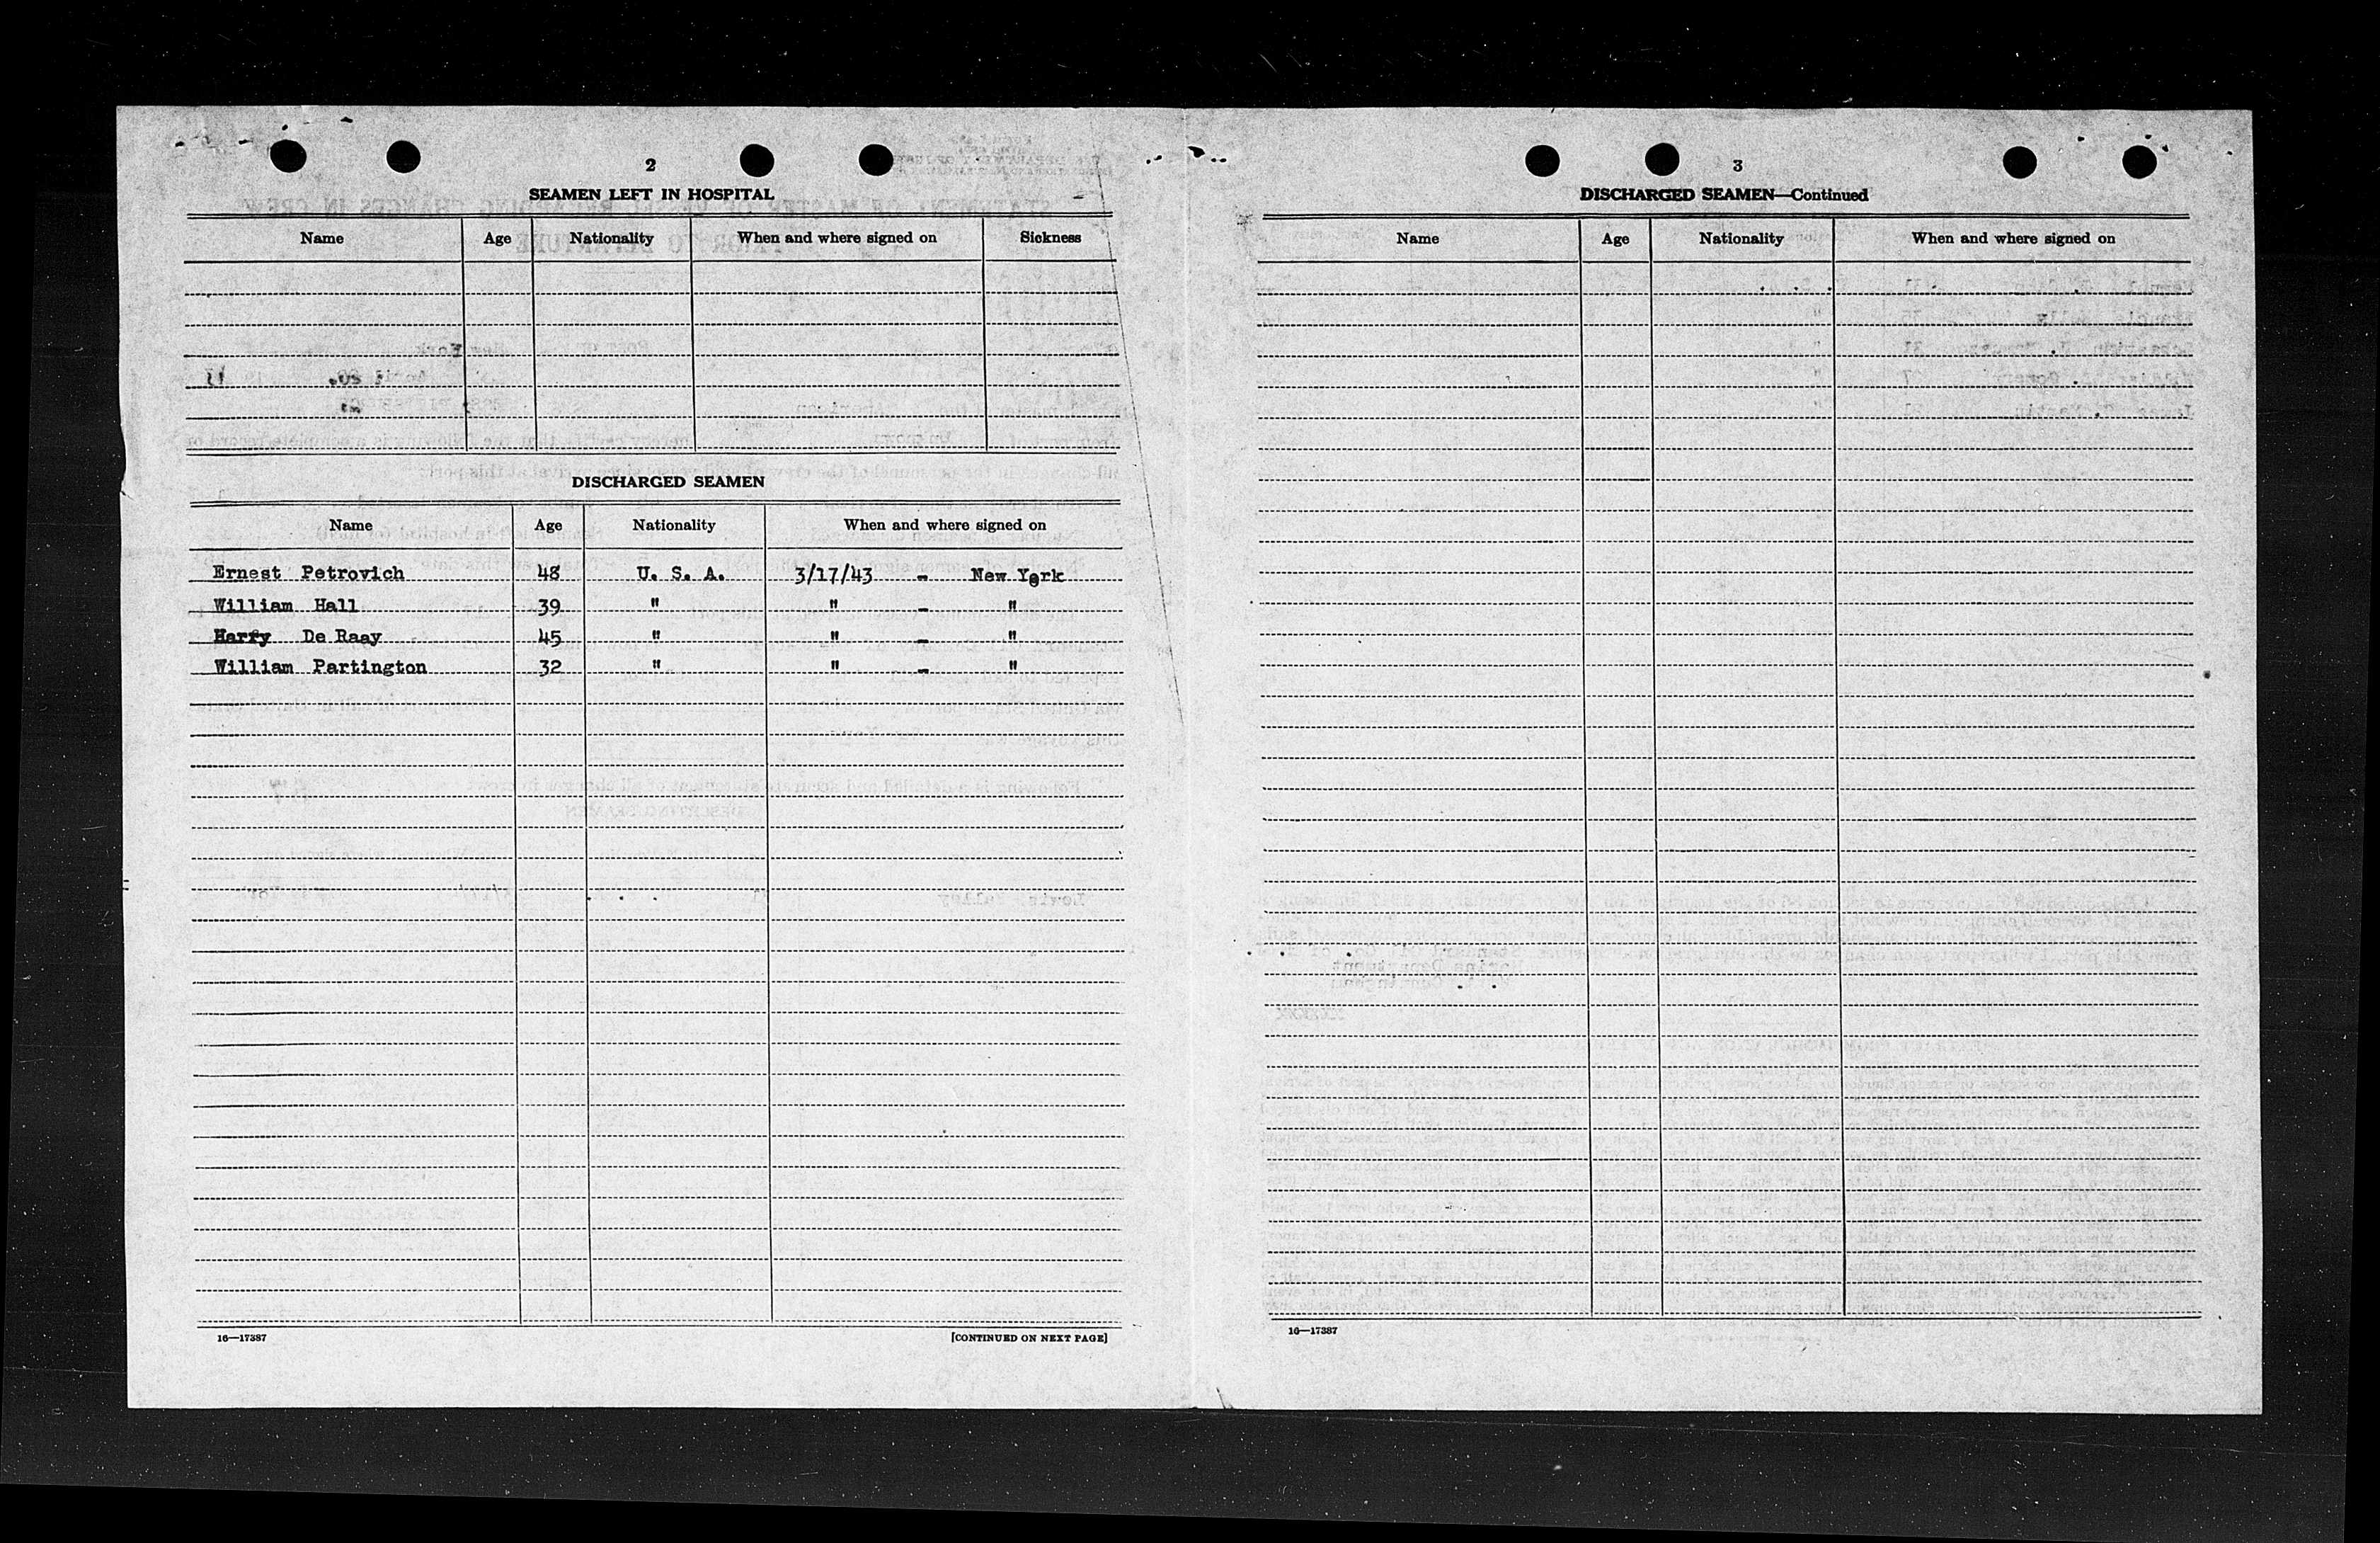 2
SEAMEN LEFT IN HOSPITAL
Name Age Nationality When and where signed on Sickness
DISCHARGED SEAMEN
Name Age Nationality When and where signed on
Ernest Petrovich 48 U. S. A. 3/17/43 - New York
William Hall 39 " " - "
Harry De Raay 45 " " - "
William Partington 32 " " - "
16—17387 [CONTINUED ON NEXT PAGE]
3
DISCHARGED SEAMEN—Continued
Name Age Nationality When and where signed on
16—17387